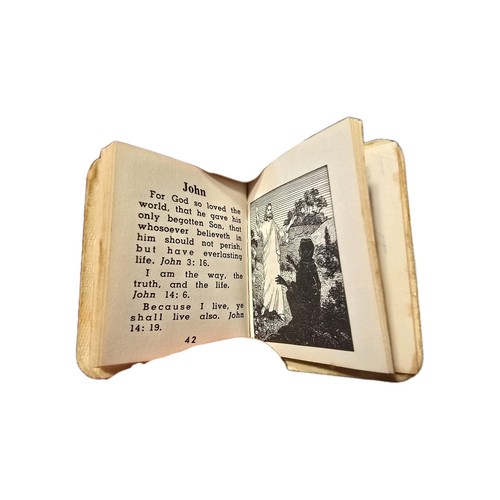 John
For God so loved the
world, that he gave his
only begotten Son, that
whosoever believeth in
him should not perish,
but have everlasting
life. John 3: 16.
I am the way, the
truth, and the life.
John 14: 6.
Because I live, ye
shall live also. John
14: 19.
42